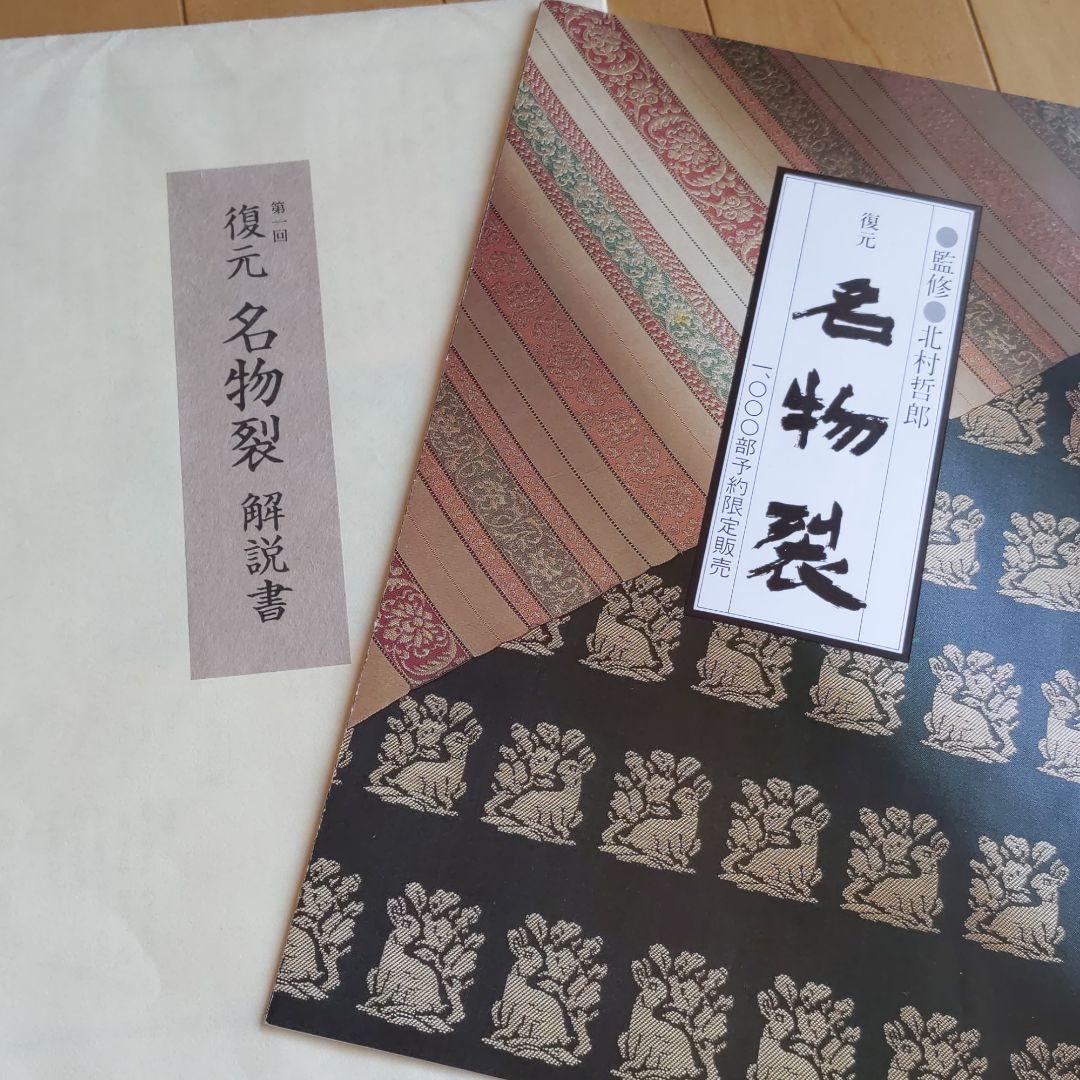 第一回
復元 名物裂 解説書
●監修●北村哲郎
復元 名物裂
一、〇〇〇部予約限定販売